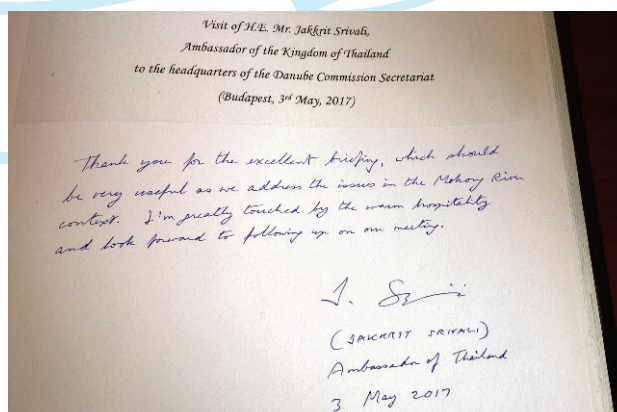 Visit of H.E. Mr. Jakkrit Srivali,
Ambassador of the Kingdom of Thailand
to the headquarters of the Danube Commission Secretariat
(Budapest, 3rd May, 2017)
Thank you for the excellent briefing, which should
be very useful as we address the issues in the Mekong River
context. I'm greatly touched by the warm hospitality
and look forward to following up on our meeting.
J. S
(JAKKRIT SRIVALI)
Ambassador of Thailand
3 May 2017